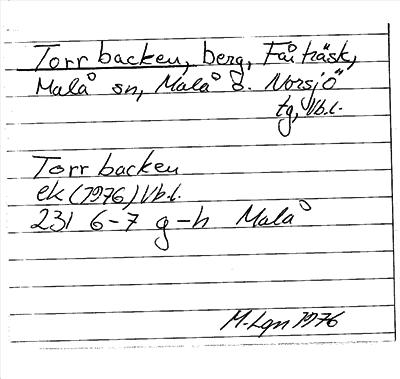 Torrbacken, berg, Fårträsk,
Malå sn, Malå o. Norsjö
tg, Vb.l.
Torrbacken
ek (1976) Vb.l.
231 6-7 g-h Malå
M-Lgn 1976